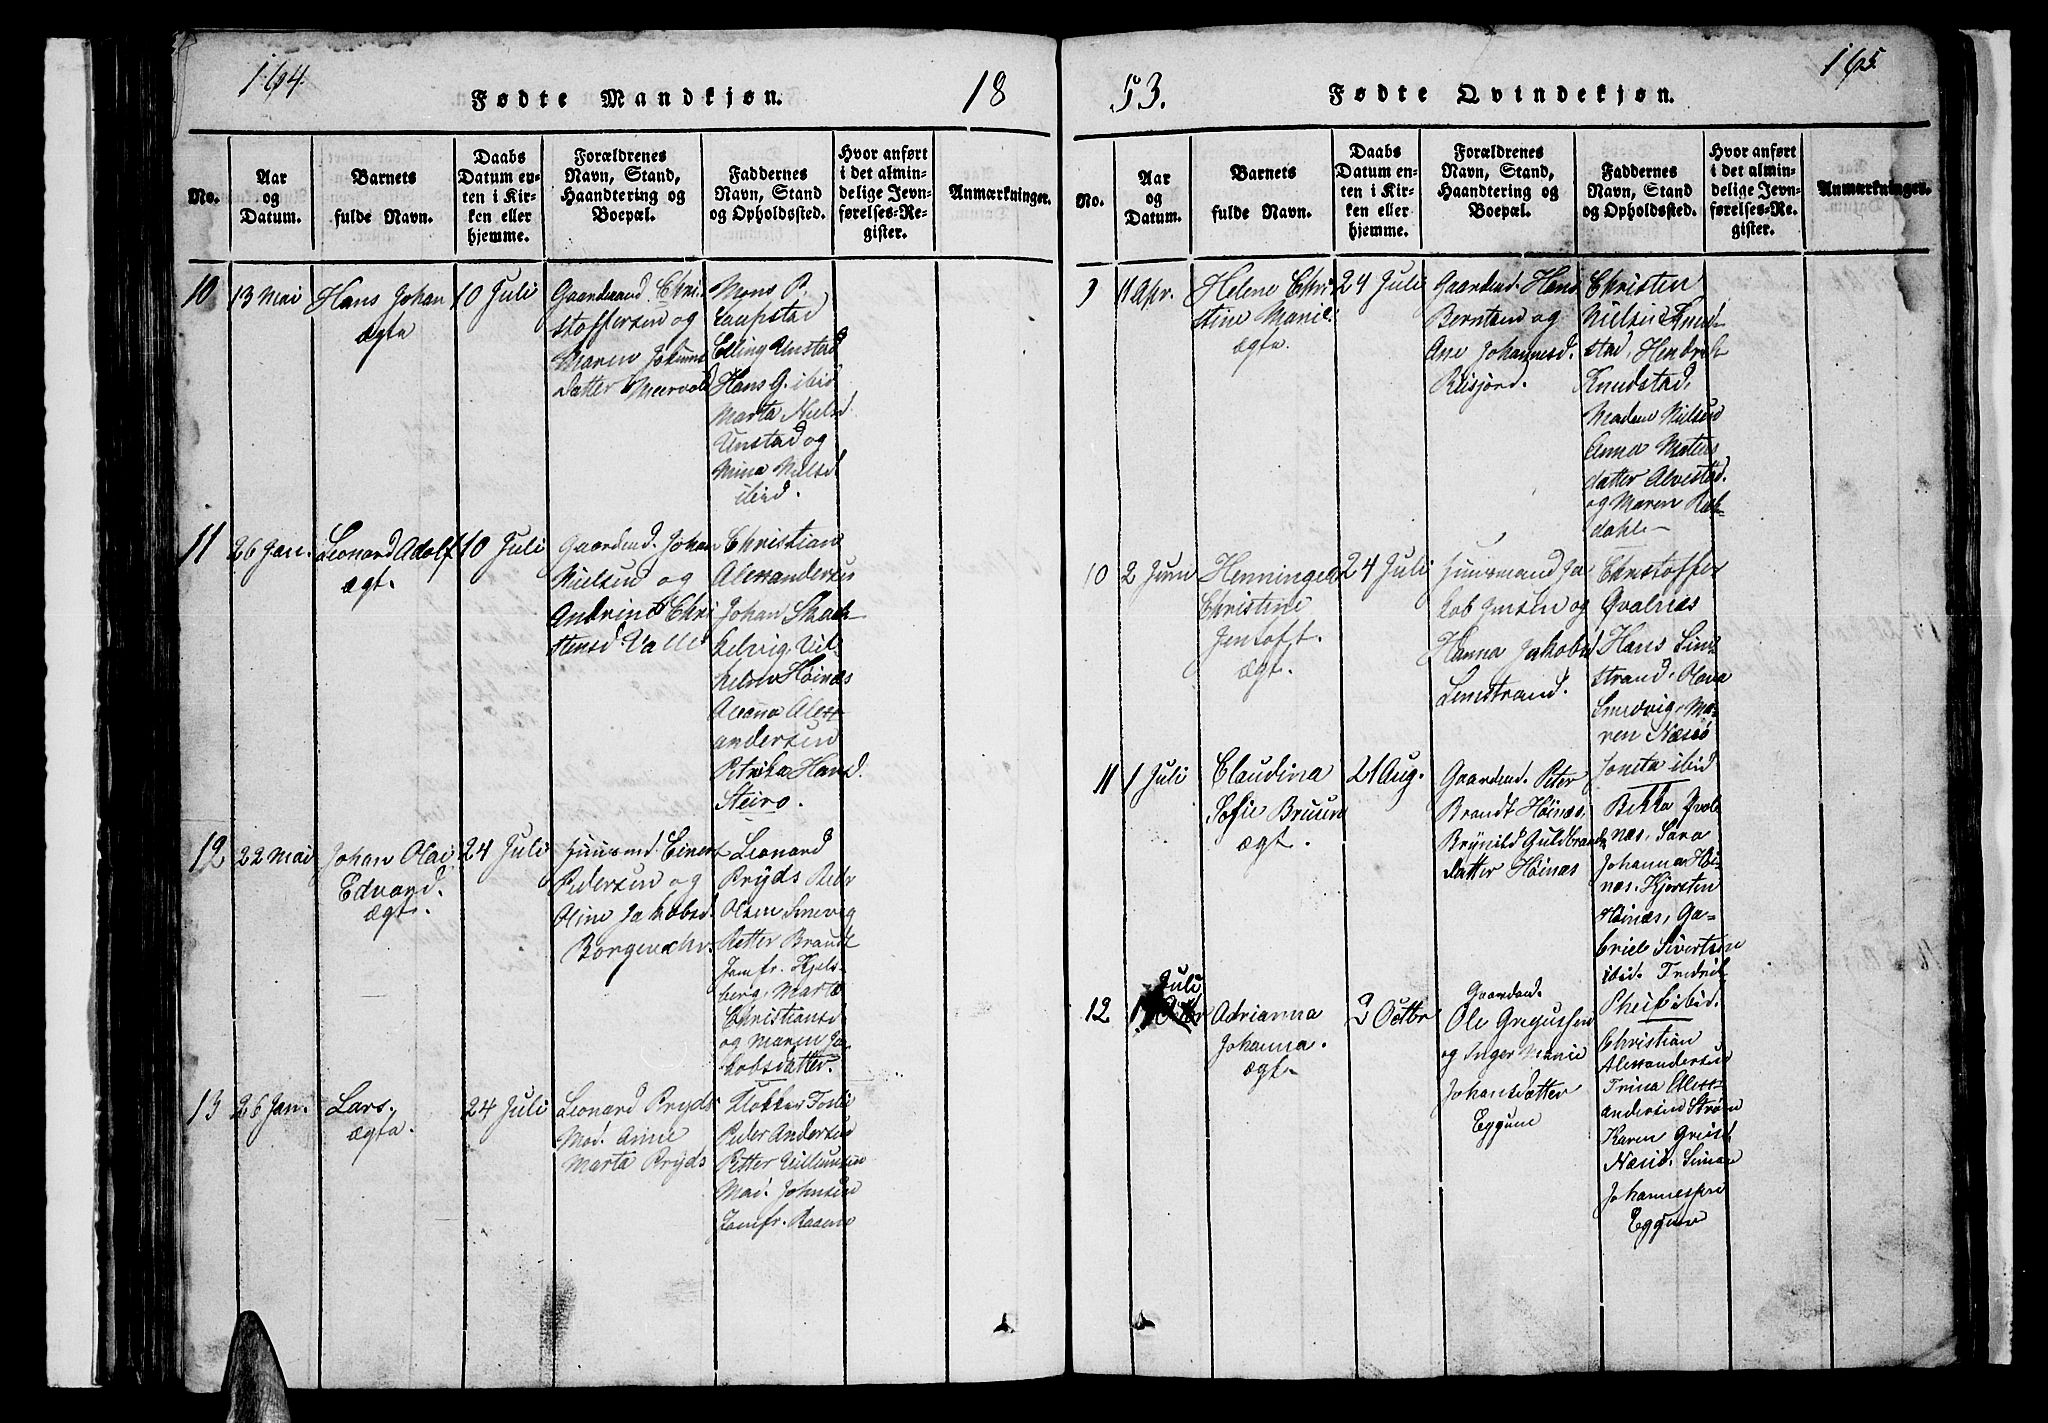 164.
Fødte Mandkjøn.
18
No.
Aar
og
Datum.
Barnets
fulde Navn.
Daabs
Datum en-
ten i Kir-
ken eller
hjemme.
Forældrenes
Navn, Stand,
Haandtering og
Boepæl.
Faddernes
Navn, Stand
og Opholdssted.
Hvor anført
i det almin-
delige Jevn-
førelses-Re-
gister.
Anmærkninger.
10
13 Mai
Hans Johan
ægte
10 Juli
Gaardmand Chri-
stoffersen og
Maren
Datter
Mons P.
Laupstad
Elling Unstad
Hans G. ibid
Marta Nielsd
Unstad og
Mina Nielsd
ibid.
11
26 Jan.
Leonard Adolf
ægt.
10 Juli
Gaardmd. Johan
Nielsen og
Andrine Chri
stensd Valle
Christian
Alexandersen
Johan Skaa-
helvig, Vil-
helm Höinæs
Alexa-
andersen
Petrika Hansd.
Steiro.
12
22 Mai
Johan Olai
Edvard.
ægt.
24 Juli
Huusmd. Einert
Pedersen og
Oline Jakobsd.
Leonard
Pryds Peder
Olsen Smevig
Petter Brandt
Jomfr. Kjels-
berg, Marta
Christiansd
og Maren Ja-
kobsdatter.
13
26 Jan.
Lars,
ægta.
24 Juli
Leonard Pryds
Mad. Anne
Marta Pryds
Klokker
Peder Andersen
Petter Villumsen
Mad. Johnsen
Jomfr.
165.
53.
Fødte Qvindekjøn.
No.
Aar
og
Datum.
Barnets
fulde Navn.
Daabs
Datum en-
ten i Kir-
ken eller
hjemme.
Forældrenes
Navn, Stand,
Haandtering og
Boepæl.
Faddernes
Navn, Stand
og Opholdssted.
Hvor anført
i det almin-
delige Jevn-
førelses-Re-
gister.
Anmærkninger.
9
11 Apr.
Helene Chri-
stine Marie.
ægta.
24 Juli
Gaardmd. Hans
Berntsen og
Ane Johannesd.
Christen
Nielsen Knud-
stad, Hendrik
Knudstad,
Madme Nielsen
Anna Matias
datter Alvestad.
og Maren Rek-
dahl
10
2 Juni
Henninged
Christine
Jentoft.
ægt.
24 Juli
Huusmand Ja
kob Jensen og
Hanna Jakobsd
Limstrand.
Christoffer
Qvalnæs
Hans Lim-
strand, Olava
Smedvig, Ma-
ren Næsiö
ibid
11
1 Juli
Claudina
Sofie Brusen
ægt.
21 Aug.
Gaardmd. Peter
Brandt Höinæs,
Brynild Guldbrands
datter Höinæs
Bekka Qval-
næs, Sara
Johanna Höi-
næs. Kjersten
Höinæs, Ga-
briel Sivertsen
ibid. Fredrik
ibid.
12
1 Juli
Adrianna
Johanna.
ægt.
2 Octbr
Gaardmd.
Ole Gregussen
og Inger Marie
Johansdatter
Eggum
Christian
Alexandersen
Trina Alex-
andersen Ström
Karen
Næsiö. Simon
Johannes
Eggum